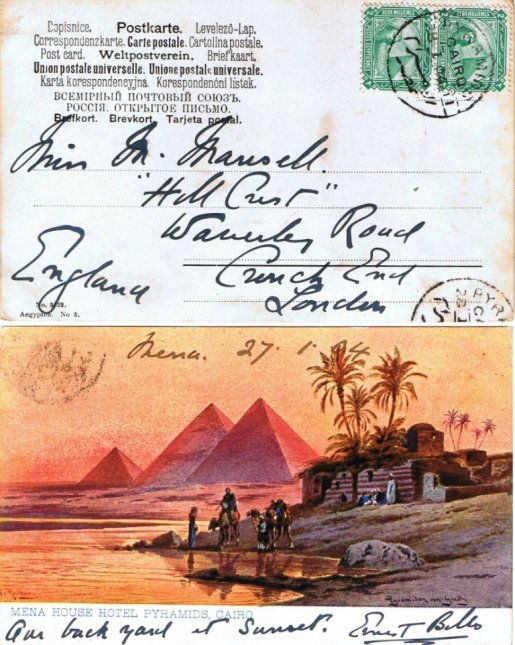 Dopisnice. Postkarte. Levelező-Lap.
Correspondenzkarte. Carte postale. Cartolina postale.
Post card. Weltpostverein. Briefkaart.
Union postale universelle. Unione postale universale.
Karta korespondencyjna. Korespondenční lístek.
ВСЕМІРНЫЙ ПОЧТОВЫЙ СОЮЗЪ.
РОССІЯ. ОТКРЫТОЕ ПИСЬМО.
Brefkort. Brevkort. Tarjeta postal.
Miss M. Mansell.
"Hill Crest"
Waverley Road
Crouch End
London
England
CAIRO
No.
Aegypten. No 3.
Mena. 27.1.04
Pyramiden von Gizeh
MENA HOUSE HOTEL PYRAMIDS, CAIRO
Our back yard at Sunset. Ernest